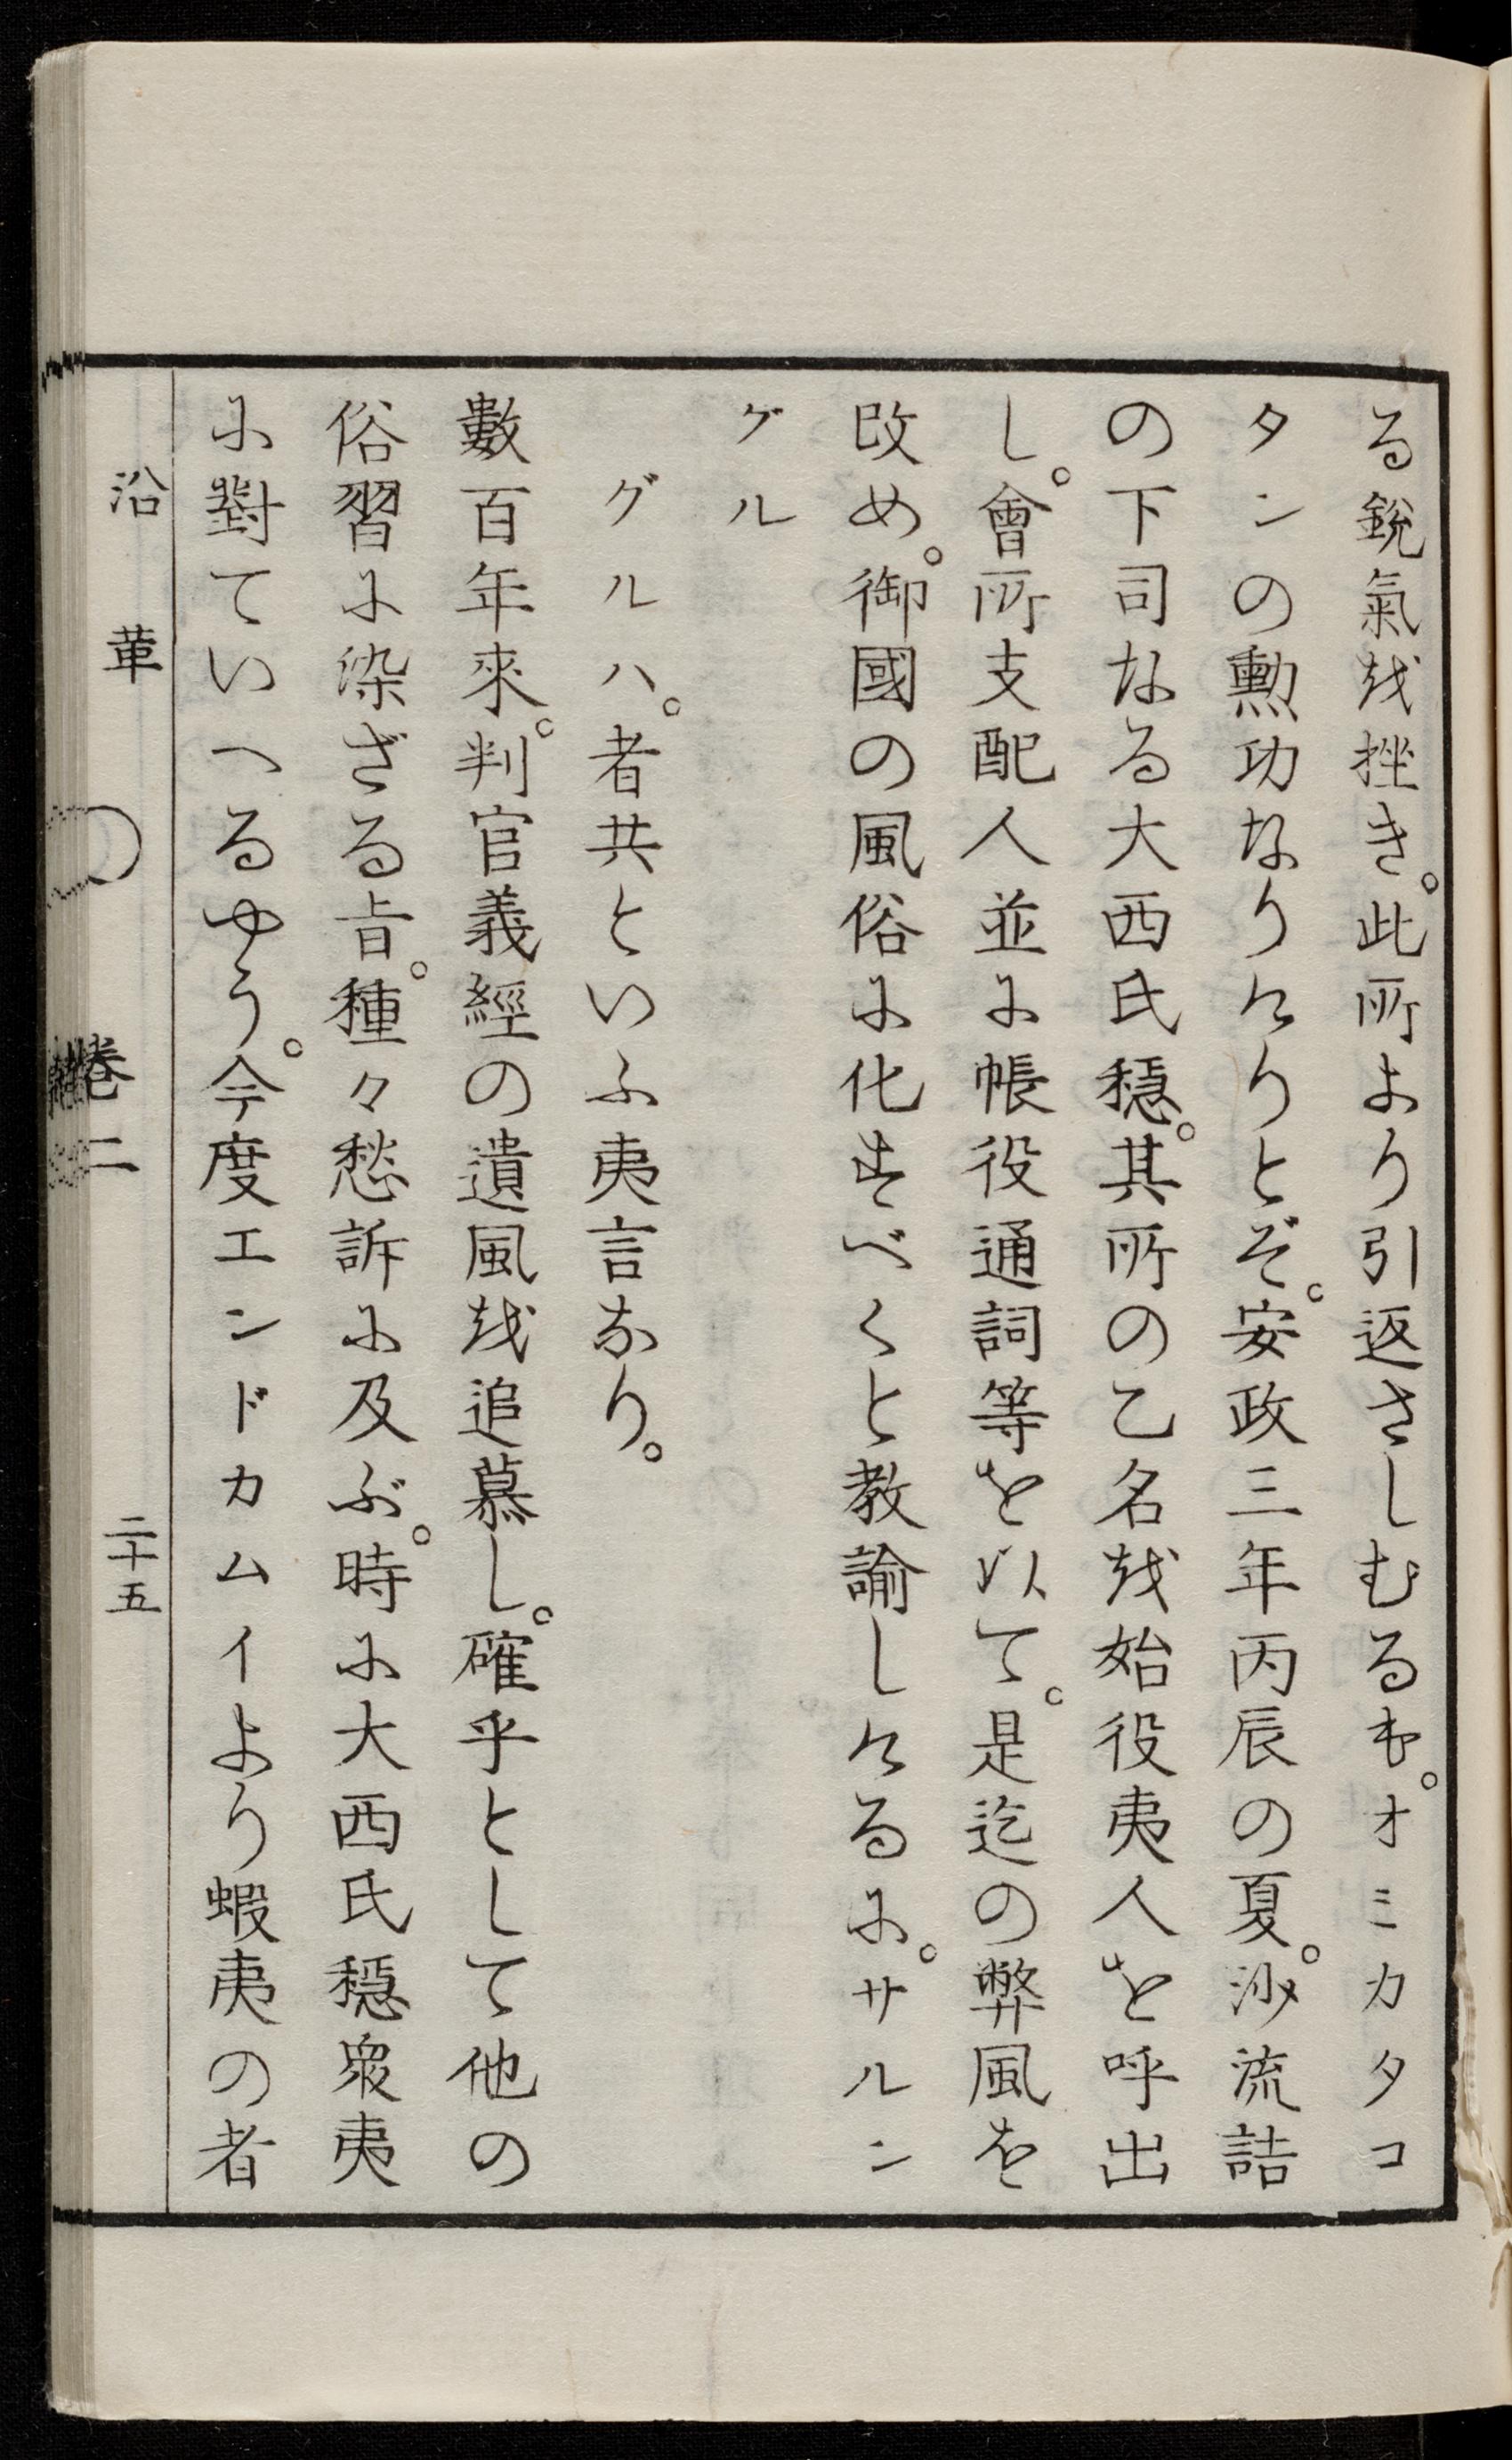 る鋭氣越挫き。此所より引返さしむるも。オミカタコ
タンの勲功なりけりとぞ。安政三年丙辰の夏。沙流詰
の下司なる大西氏穏。其所の乙名越始役夷人を呼出
し。會所支配人並に帳役通詞等を以て。是迄の弊風を
改め。御國の風俗に化すべくと教諭しけるに。サルン
グル
グルハ。者共といふ夷言なり。
數百年來。判官義經の遺風越追慕し。確乎として他の
俗習に染ざる旨。種々愁訴に及ぶ。時に大西氏穏衆夷
に對ていへるゆう。今度エンドカムイより蝦夷の者
沿革 巻二 二十五